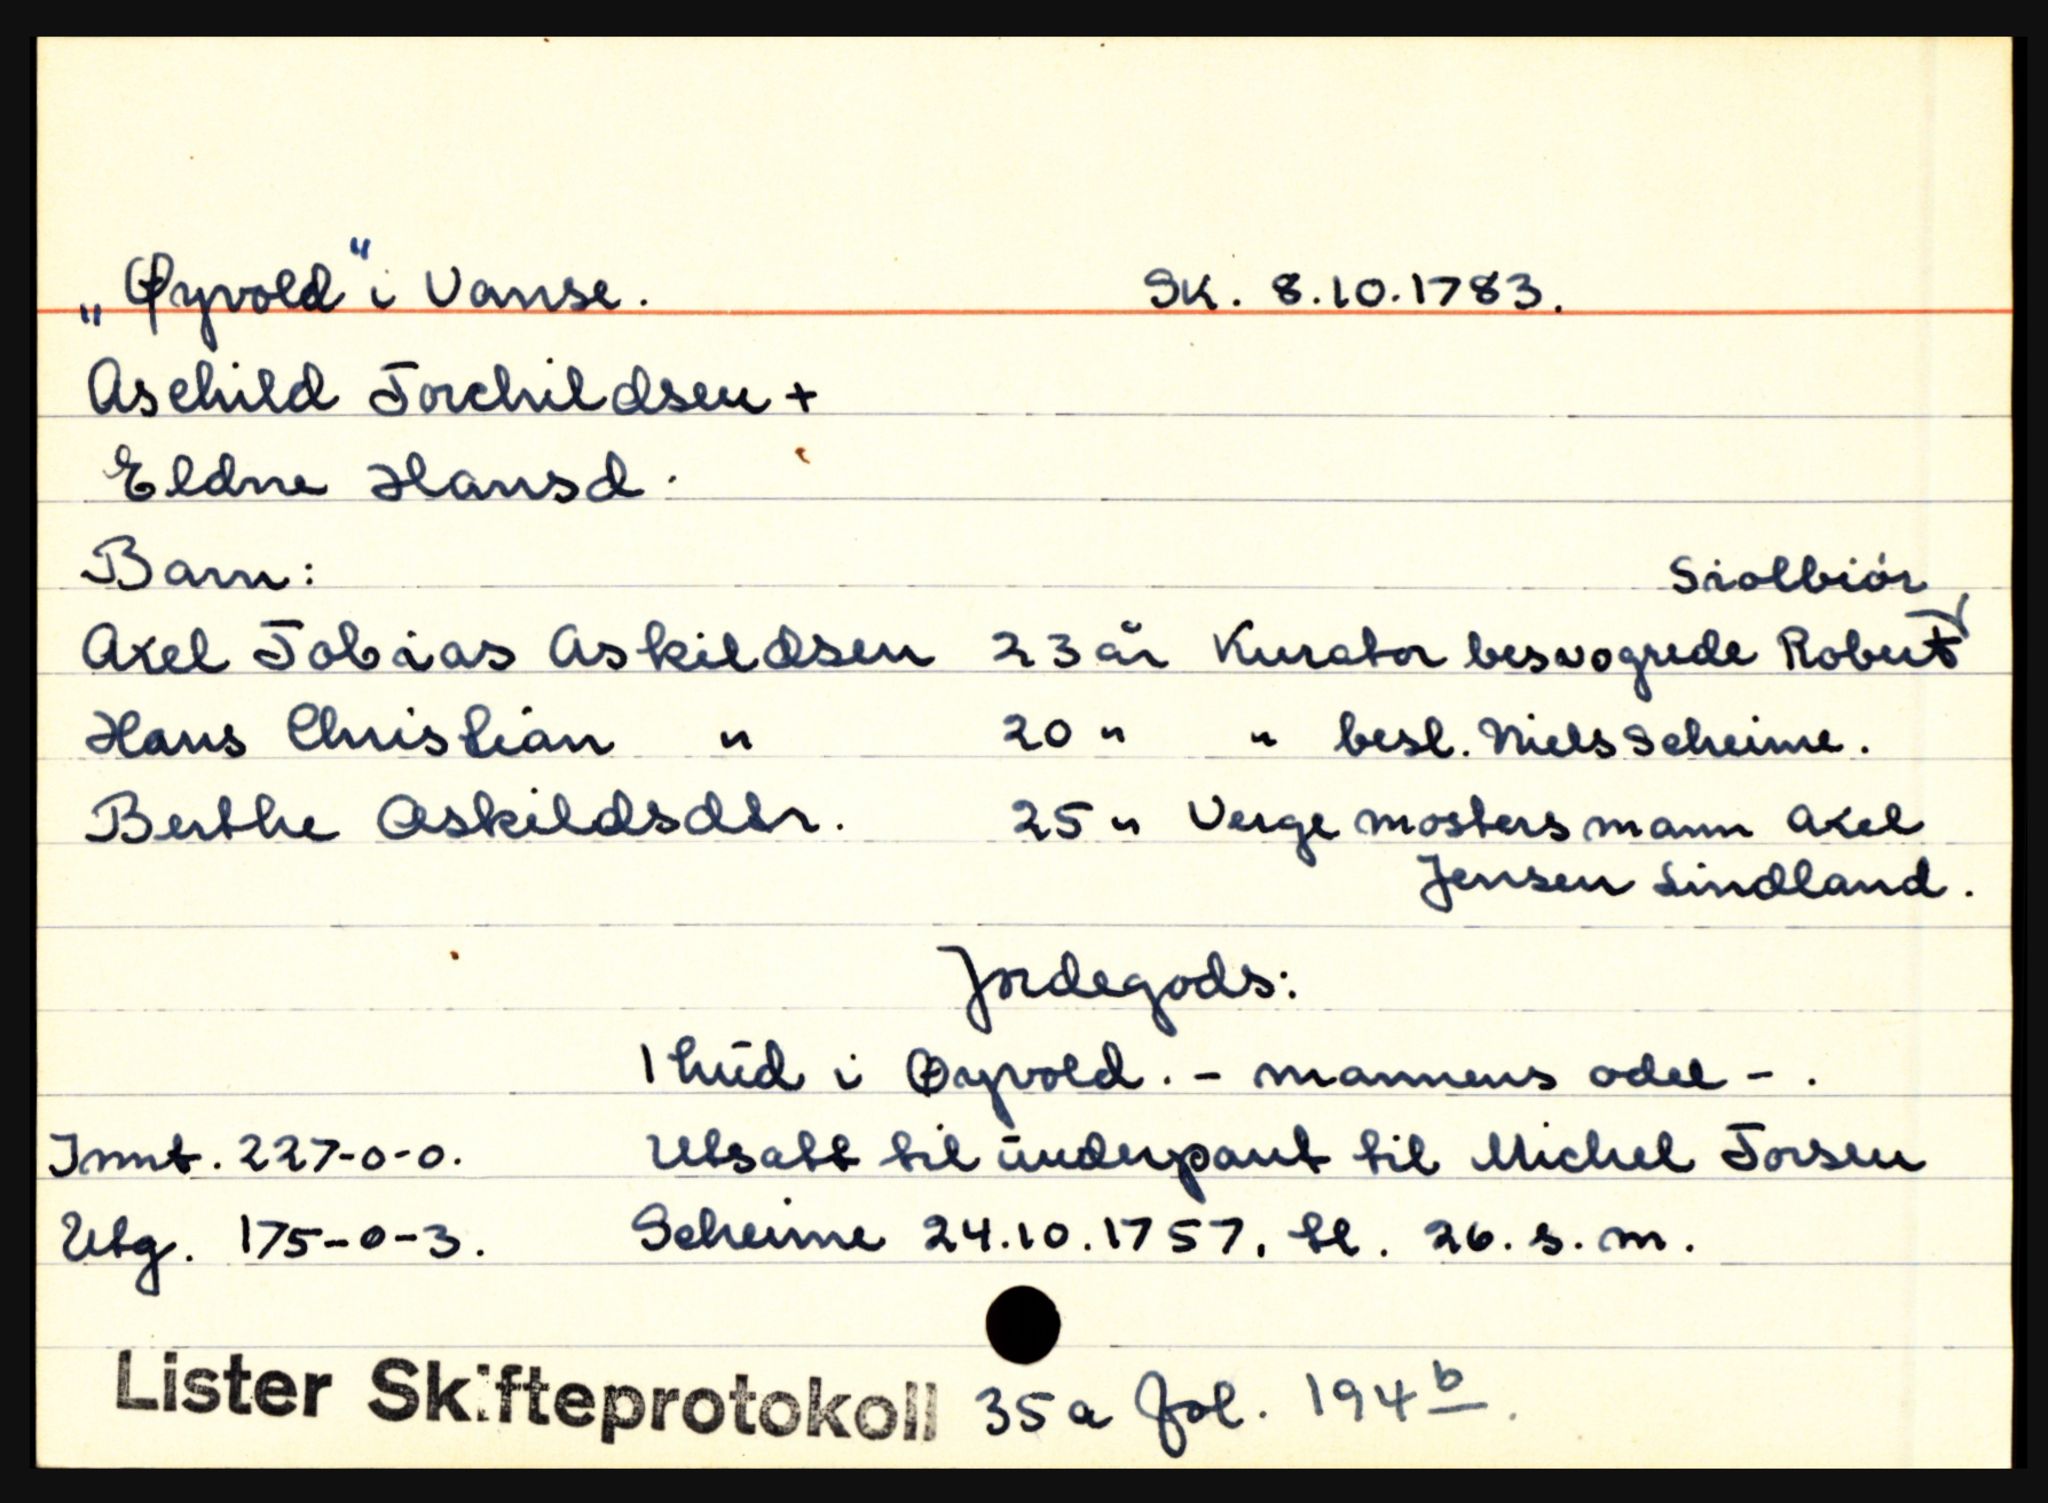 „Øyvold“ i Vanse. Sk. 8.10.1783.
Aschild Torchildsen +
Eldne Hansd.
Barn:
Siolbiór
Axel Tobias Askildsen 23 år Kurator besvogrede Robert
Hans Christian " 20 " " besl. Niels Scheime.
Berthe Askildsdtr. 25 " Verge mosters mann Axel
Jensen Lindland.
Jordegods:
1 hud i Øyvold. - mannens odel - .
Innt. 227-0-0. Utsatt til underpant til Michel Torsen
Utg. 175-0-3. Scheime 24.10.1757, tl. 26. s. m.
Lister Skifteprotokoll 35a fol. 194 b.